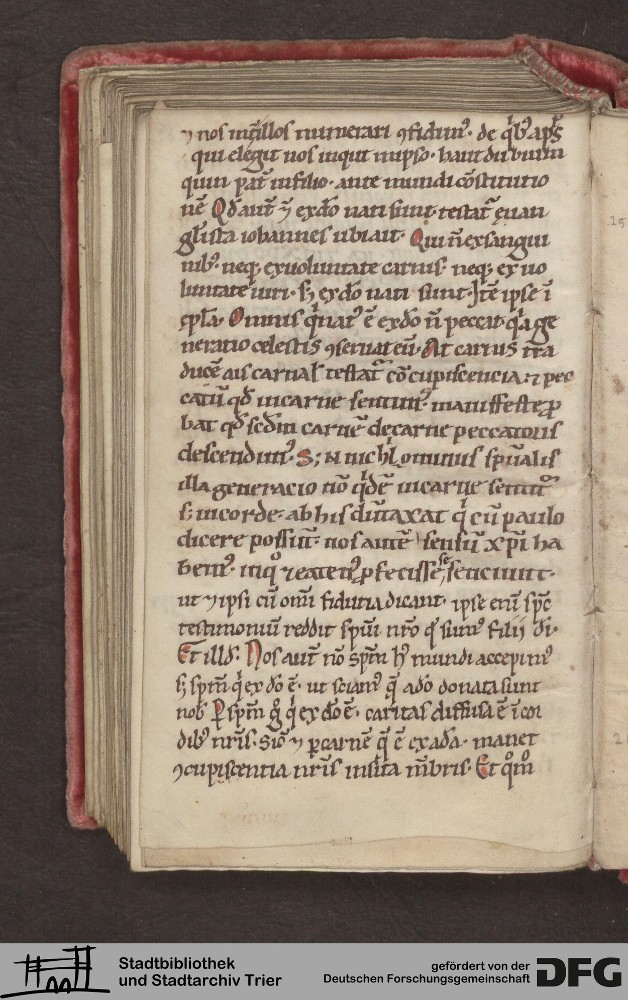 ⁊ nos int̄ illos numerari ꝯfidim᷒. de q̇b᷒ ap̄ls
qui elegit nos inquit in ipso. haut dubium
quin pat̄ in filio. ante mundi cōstitutio
nē Qd̄ aut̄ ⁊ ex dō nati sunt. testat᷑ euan
gl̄ista iohannes ubi ait. Qui n̄ ex sangui
nib᷒. neq; ex uoluntate carnis. neq; ex uo
luntate uiri. s; ex dō nati sunt. Itē ipse ī
epl̄a. Omnis q̇ nat᷒ ē ex dō n̄ peccat. q̇a ge
neratio celestis ꝯseruat eū. At carnis tra
ducē ais carnal̄ testat᷑ cōcupiscencia: ⁊ pec
catū qd̄ in carne sentim᷒. manifeste ꝓ
bat qd̄ scd̄m carnē de carne peccatoris
descendim᷒. S; N nichl̄ omnius sp̄ualis
illa generacio nō q̇dē in carne sentit᷑
s; in corde. ab his dūtaxat q̇ cū paulo
dicere possunt. nos autē sensū xp̄i ha
bem᷒. in qͦ ⁊ eaten᷒ ꝓfecisse se senciunt.
ut ⁊ ipsi cū om̄i fiducia dicant. ipse eni sp̄c
testimoniū reddit sp̄ui nr̄o q' sum᷒ filij di.
Et illd̄. Nos aut̄ nō sp̄m h᷒ mundi accepim᷒
s; sp̄m q̇ ex dō ē. ut sciam᷒ q̄ a dō donata sunt
nob᷒ P sp̄m g̊ q̇ ex dō ē. caritas diffusa ē ī cor
dib᷒ nr̄is. Sic᷑ ⁊ ꝑ carnē q̄ ē ex adā. manet
ꝯcupiscentia nr̄is insita m̄bris. Et qͦmͦ
Stadtbibliothek
und Stadtarchiv Trier
gefördert von der
Deutschen Forschungsgemeinschaft
DFG